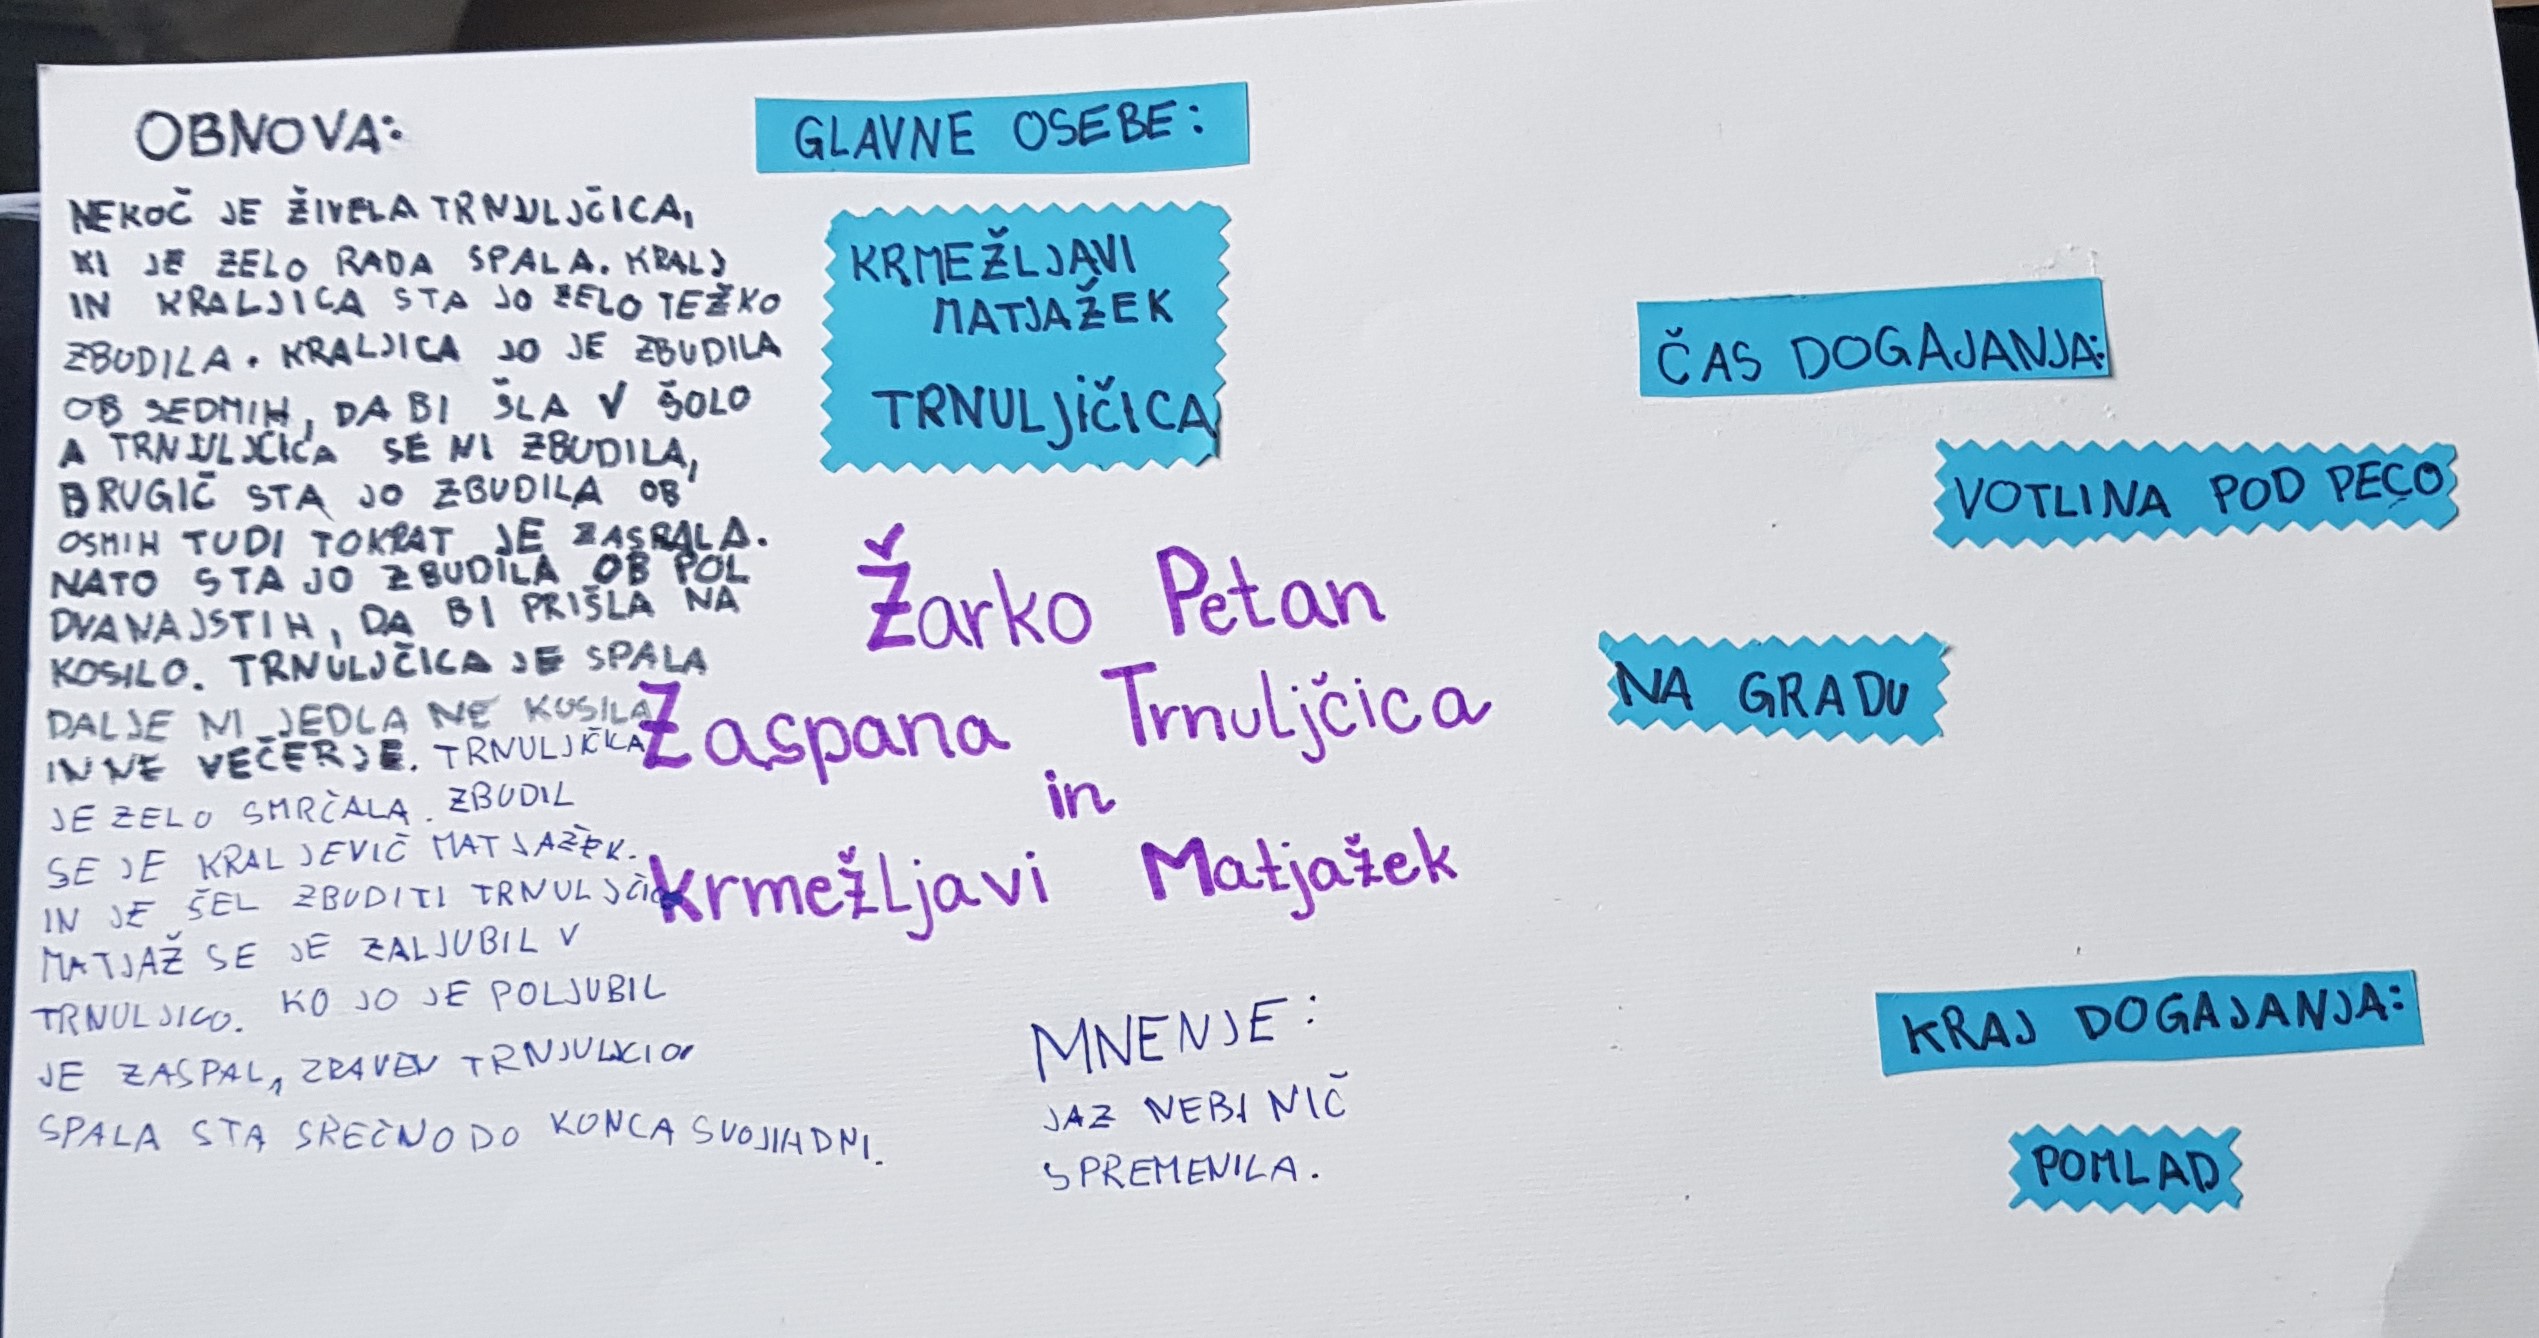 OBNOVA:
NEKOČ JE ŽIVELA TRNULJČICA,
KI JE ZELO RADA SPALA. KRALJ
IN KRALJICA STA JO ZELO TEŽKO
ZBUDILA. KRALJICA JO JE ZBUDILA
OB SEDMIH, DA BI ŠLA V ŠOLO
A TRNULJČICA SE NI ZBUDILA,
DRUGIČ STA JO ZBUDILA OB
OSMIH TUDI TOKRAT JE ZASPALA.
NATO STA JO ZBUDILA OB POL
DVANAJSTIH, DA BI PRIŠLA NA
KOSILO. TRNULJČICA JE SPALA
DALJE NI JEDLA NE KOSILA
IN NE VEČERJE. TRNULJČKA
JE ZELO SMRČALA. ZBUDIL
SE JE KRALJEVIČ MATJAŽEK.
IN JE ŠEL ZBUDITI
MATJAŽ SE JE ZALJUBIL V
TRNULJICO. KO JO JE POLJUBIL
JE ZASPAL, ZRAVEN
SPALA STA SREČNO DO KONCA SVOJIH DNI.
GLAVNE OSEBE:
KRMEŽLJAVI
MATJAŽEK
TRNULJIČICA
Žarko Petan
Zaspana Trnuljčica
in
krmežLjavi Matjažek
MNENJE:
JAZ NEBI NIČ
SPREMENILA.
ČAS DOGAJANJA:
VOTLINA POD PECO
NA GRADU
KRAJ DOGAJANJA:
POMLAD